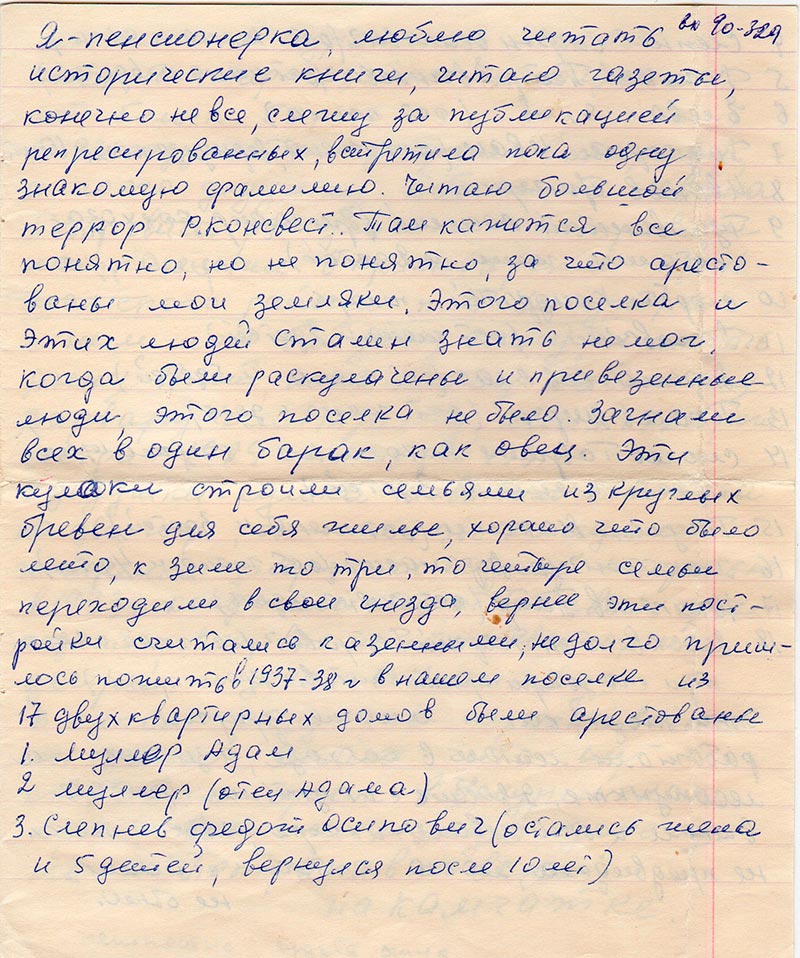 вх 90-329
Я-пенсионерка, люблю читать
исторические книги, читаю газеты,
конечно не все, слежу за публикацией
репресированных, встретила пока одну
знакомую фамилию. Читаю большой
террор Р.Консвест. Там кажется все
понятно, но не понятно, за что аресто-
ваны мои земляки. Этого поселка и
этих людей Сталин знать не мог,
когда были раскулачены и привезенные
люди, этого поселка не было. Загнали
всех в один барак, как овец. Эти
кулаки строили семьями из круглых
бревен для себя жилье, хорошо что было
лето, к зиме то три, то четыре семьи
переходили в свои гнезда, вернее эти пост-
ройки считались казенными, не долго приш-
лось пожить в 1937-38 г в нашем поселке из
17 двухквартирных домов были арестованы
1. Муллер Адам
2 Муллер (отец Адама)
3. Слепнев Федот Осипович (остались жена
и 5 детей, вернулся после 10 лет)